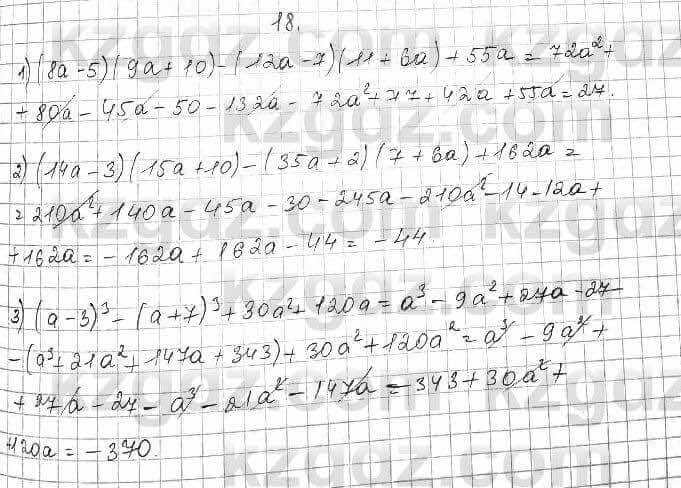 18.
1) (8a-5)(9a+10)-(12a-7)(11+6a)+55a=72a²+
+80a-45a-50-132a-72a²+77+42a+55a=27.
2) (14a-3)(15a+10)-(35a+2)(7+6a)+162a=
=210a²+140a-45a-30-245a-210a²-14-12a+
+162a=-162a+162a-44=-44.
3) (a-3)³-(a+7)³+30a²+120a=a³-9a²+27a-27-
-(a³+21a²+147a+343)+30a²+120a²=a³-9a²+
+27a-27-a³-21a²-147a=343+30a²+
+120a=-370.
kzgdz.com